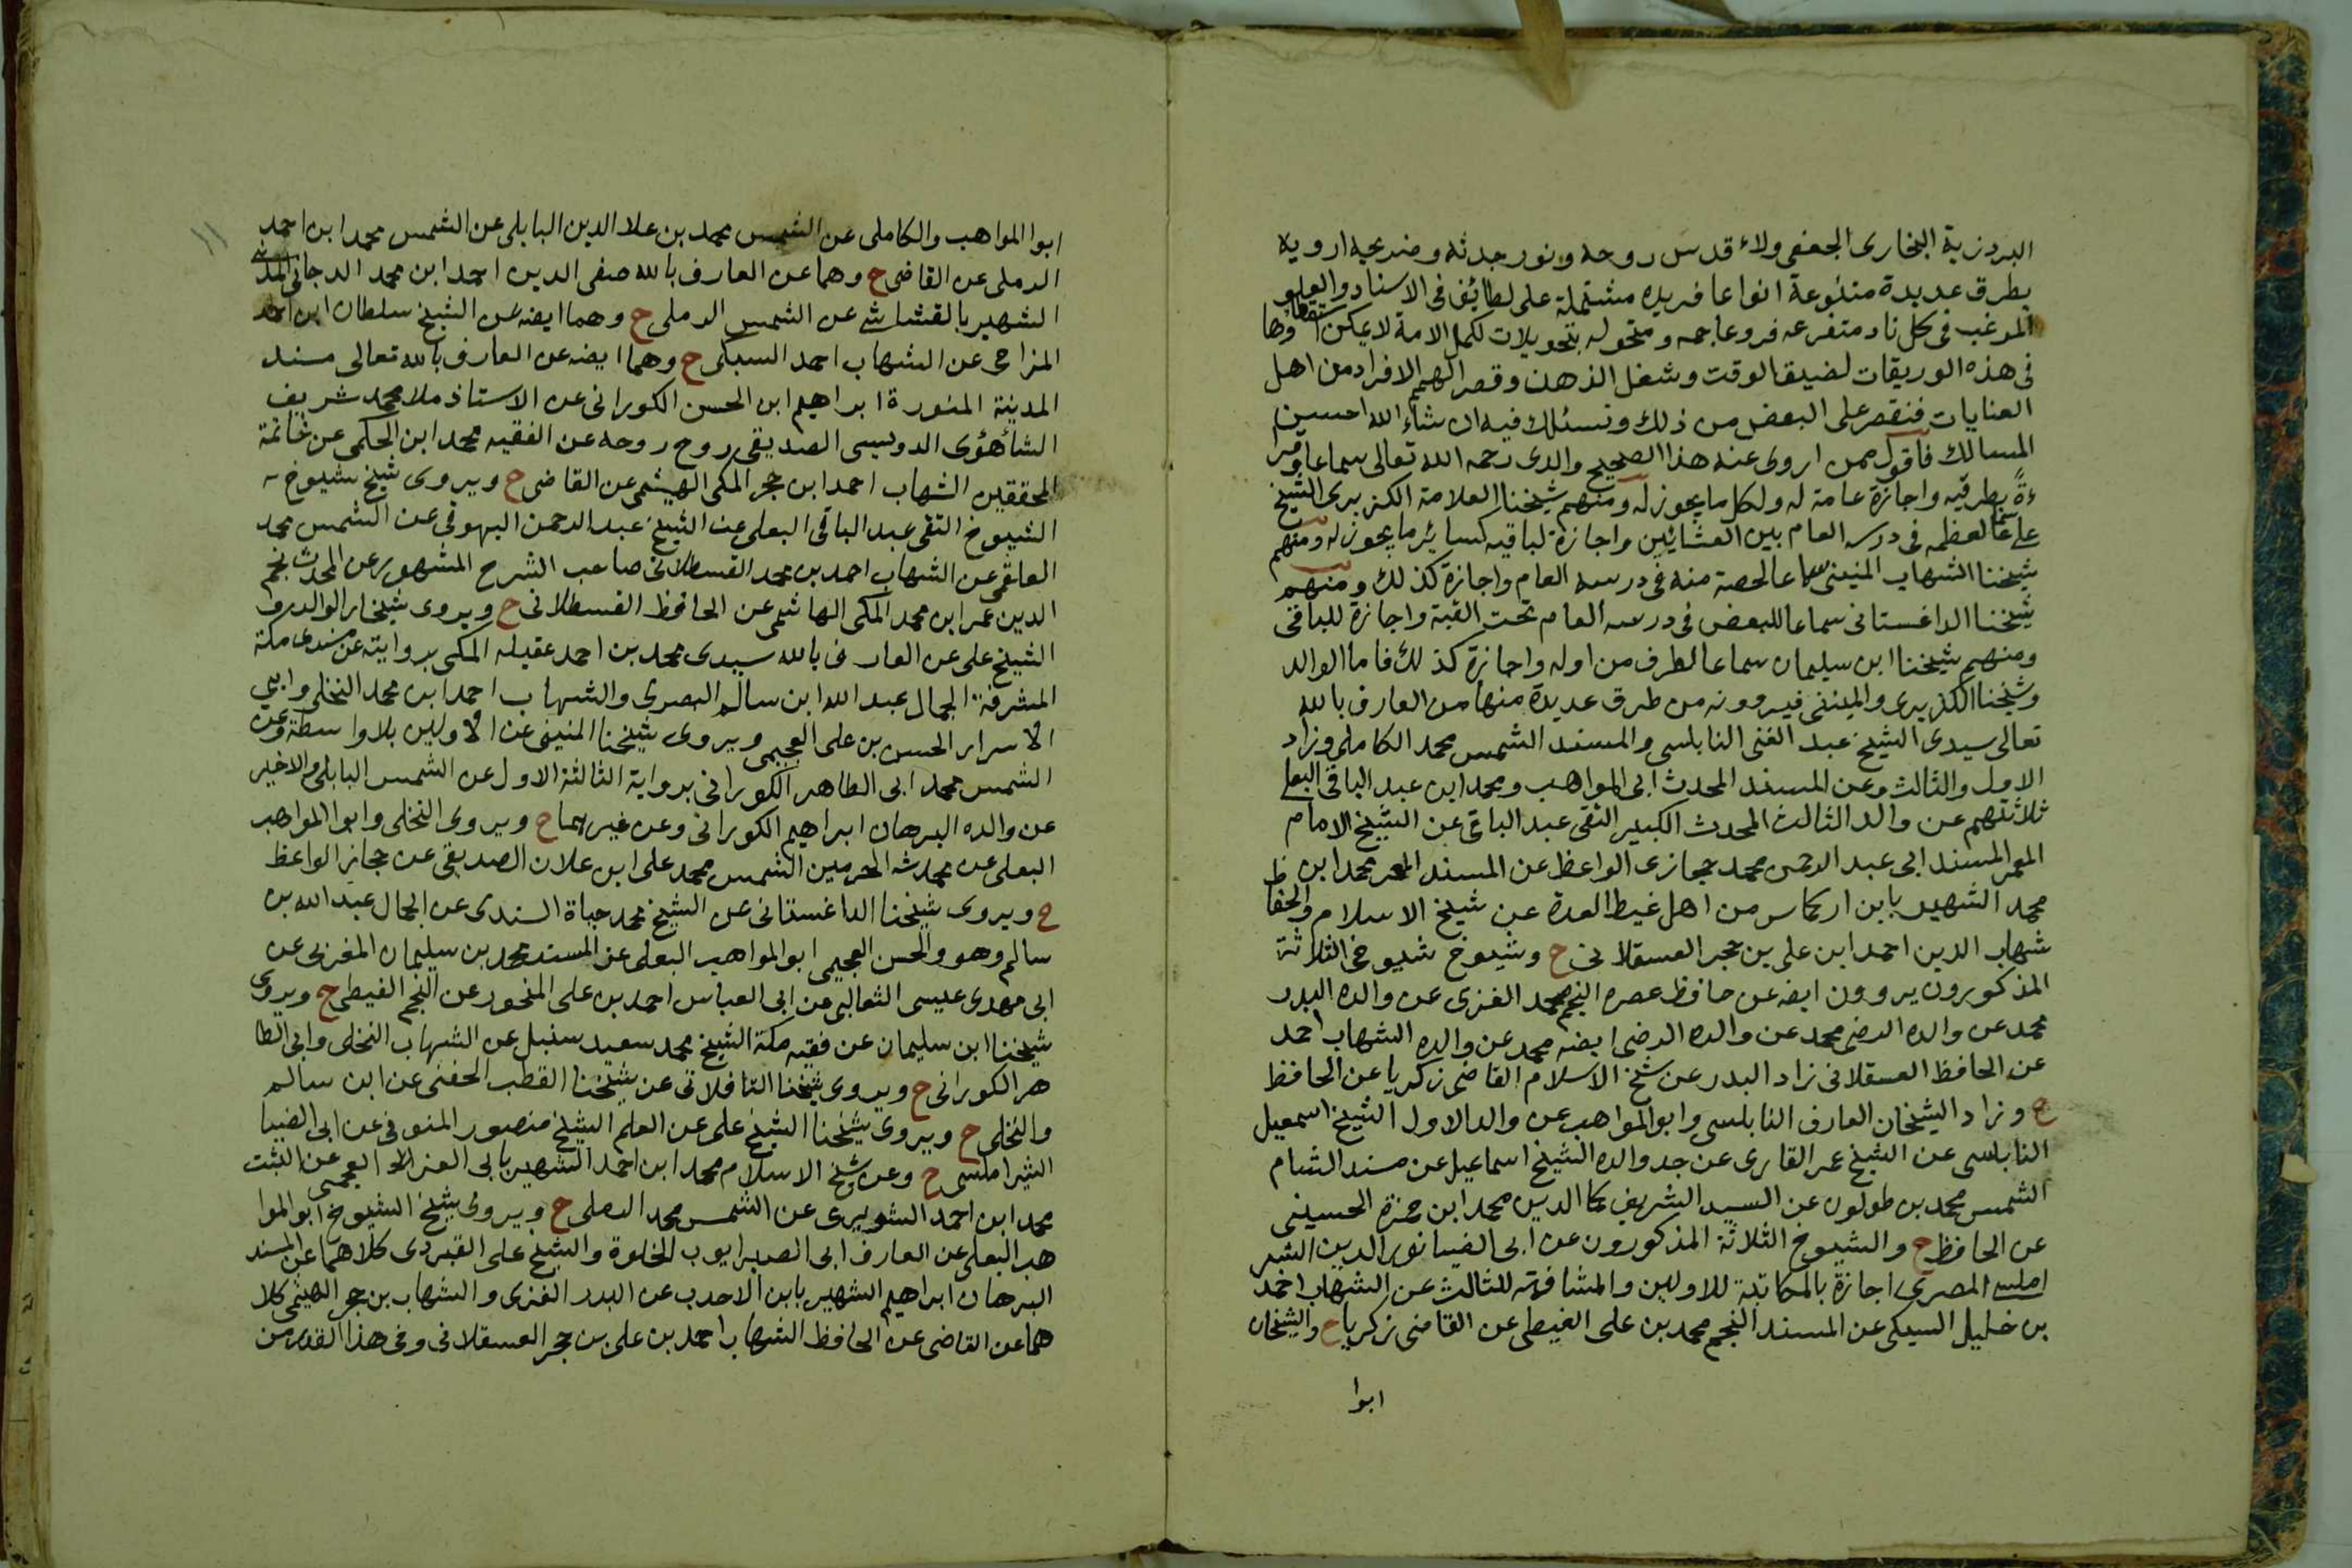 البردزبة البخاري الجعفي ولاء قدس روحه ونور جدثه وضريحه ارويه
بطرق عديدة متنوعة انواعا فريده مشتملة على لطائف في الاسناد والعلو
المرغب في كل ناد متفرعه فروعا جمه ومتحوله بتحويلات لكمل الامة لا يمكن استقصاؤها
في هذه الوريقات لضيق الوقت وشغل الذهن وقصر الهمم الافراد من اهل
العنايات فنقصر على البعض من ذلك ونسئلك فيه ان شاء الله احسن
المسالك فاقول ممن اروي عنه هذا الصحيح والدي رحمه الله تعالى سماعا وقرا
ءة بطرفيه واجازة عامة له ولكل ما يجوز له ومنهم شيخنا العلامة الكزبري الشيخ
علي سماعا لعظمه في درسه العام بين العشائين واجازة لباقيه كسائر ما يجوز له ومنهم
شيخنا الشهاب المنيني سماعا لحصة منه في درسه العام واجازة كذلك ومنهم
شيخنا الداغستاني سماعا للبعض في درسه العام تحت القبة واجازة للباقي
ومنهم شيخنا ابن سليمان سماعا لطرف من اوله واجازة كذلك فاما الوالد
وشيخنا الكزبري والمنيني فيروونه من طرق عديدة منها من العارف بالله
تعالى سيدي الشيخ عبد الغني النابلسي والمسند الشمس محمد الكاملي وزاد
الاول والثالث وعن المسند المحدث ابي المواهب ومحمد ابن عبد الباقي البعلي
ثلاثتهم عن والد الثالث المحدث الكبير التقي عبد الباقي عن الشيخ الامام
المعمر المسند ابي عبد الرحمن محمد حجازي الواعظ عن المسند المعمر محمد ابن
محمد الشهير بابن اركماس من اهل غيط العدة عن شيخ الاسلام والحفاظ
شهاب الدين احمد ابن علي بن حجر العسقلاني ح وشيوخ شيوخي الثلاثة
المذكورون يروون ايضه عن حافظ عصره النجم محمد الغزي عن والده البدر
محمد عن والده الرضي محمد عن والده الرضي ايضه محمد عن والده الشهاب احمد
عن الحافظ العسقلاني زاد البدر عن شيخ الاسلام القاضي زكريا عن الحافظ
ح وزاد الشيخان العارف النابلسي وابو المواهب عن والد الاول الشيخ اسمعيل
النابلسي عن الشيخ عمر القاري عن جد والده الشيخ اسماعيل عن مسند الشام
الشمس محمد بن طولون عن السيد الشريف كمال الدين محمد ابن حمزة الحسيني
عن الحافظ ح والشيوخ الثلاثة المذكورون عن ابي الضيا نور الدين الشبر
املسي المصري اجازة بالمكاتبة للاولين والمشافهة للثالث عن الشهاب احمد
بن خليل السبكي عن المسند النجم محمد بن علي الغيطي عن القاضي زكريا ح والشيخان
ابوا
١١
ابوا المواهب والكاملي عن الشمس محمد بن علا الدين البابلي عن الشمس محمد ابن احمد
الرملي عن القاضي ح وهما عن العارف بالله صفي الدين احمد ابن محمد الدجاني المدني
الشهير بالقشاشي عن الشمس الرملي ح وهما ايضه عن الشيخ سلطان ابن احمد
المزاحي عن الشهاب احمد السبكي ح وهما ايضه عن العارف بالله تعالى مسند
المدينة المنورة ابراهيم ابن الحسن الكوراني عن الاستاذ ملا محمد شريف
الصديقي روح روحه عن الفقيه محمد ابن الحكمي عن خاتمة
المحققين الشهاب احمد ابن حجر المكي الهيثمي عن القاضي ح ويروي شيخ شيوخ
الشيوخ التقي عبد الباقي البعلي عن الشيخ عبد الرحمن البهوتي عن الشمس محمد
العلقمي عن الشهاب احمد بن محمد القسطلاني صاحب الشرح المشهور عن المحدث نجم
الدين عمر ابن محمد المكي الهاشمي عن الحافظ القسطلاني ح ويروي
الشيخ علي عن العارف بالله سيدي محمد بن احمد عقيله المكي بروايته عن مسندي مكة
المشرفة الجمال عبد الله ابن سالم البصري والشهاب احمد ابن محمد النخلي وابي
الاسرار الحسن بن علي العجيمي ويروي شيخنا المنيني عن الاولين بلا واسطة وعن
الشمس محمد ابي الطاهر الكوراني برواية الثالثة الاول عن الشمس البابلي والاخير
عن والده البرهان ابراهيم الكوراني وعن غيرهما ح ويروي النخلي وابوا المواهب
البعلي عن محدث الحرمين الشمس محمد علي ابن علان الصديقي عن حجازي الواعظ
ح ويروي شيخنا الداغستاني عن الشيخ محمد حياة السندي عن الجمال عبد الله بن
سالم وهو والحسن العجيمي ابو المواهب البعلي عن المسند محمد بن سليمان المغربي عن
ابي مهدي عيسى الثعالبي عن ابي العباس احمد بن علي المنجور عن النجم الغيطي ح ويروي
شيخنا ابن سليمان عن فقيه مكة الشيخ محمد سعيد سنبل عن الشهاب النخلي وابي الطا
هر الكوراني ح ويروي شيخنا التافلاتي عن شيخنا القطب الحفني عن ابن سالم
والنخلي ح ويروي شيخنا الشيخ علي عن العلم الشيخ منصور المنوفي عن ابي الضيا
الشبراملسي ح وعن شيخ الاسلام محمد ابن احمد الشهير بابي العز العجمي عن الثبت
محمد ابن احمد الشوبري عن الشمس محمد الرملي ح ويروي شيخ الشيوخ ابو الموا
هب البعلي عن العارف ابي الصبر ايوب الخلوة والشيخ علي القبردي كلاهما عن المسند
البرهان ابراهيم الشهير بابن الاحدب عن البدر الغزي والشهاب بن حجر الهيثمي كلا
هما عن القاضي عن الحافظ الشهاب احمد بن علي بن حجر العسقلاني وفي هذا القدر من